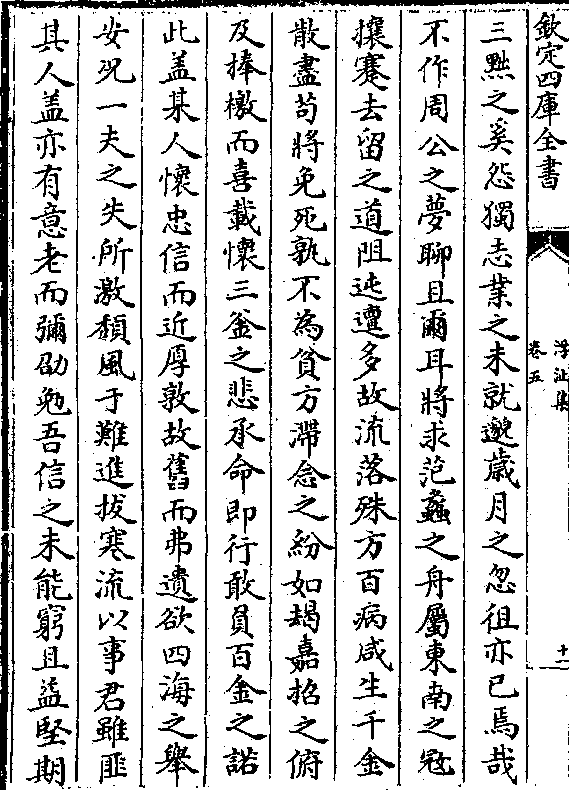 欽定四庫全書
浮沚集
卷五
十一
三黜之奚怨獨志業之未就邈歲月之忽徂亦已焉哉
不作周公之夢聊且爾耳將求范蠡之舟屬東南之冦
攘蹇去留之道阻迍邅多故流落殊方百病咸生千金
散盡茍將免死孰不為貧方滯念之紛如朅嘉招之俯
及捧檄而喜載懷三釜之悲承命即行敢負百金之諾
此盖某人懷忠信而近厚敦故舊而弗遺欲四海之舉
安況一夫之失所激頽風于難進拔寒流以事君雖匪
其人盖亦有意老而彌劭勉吾信之未能窮且益堅期